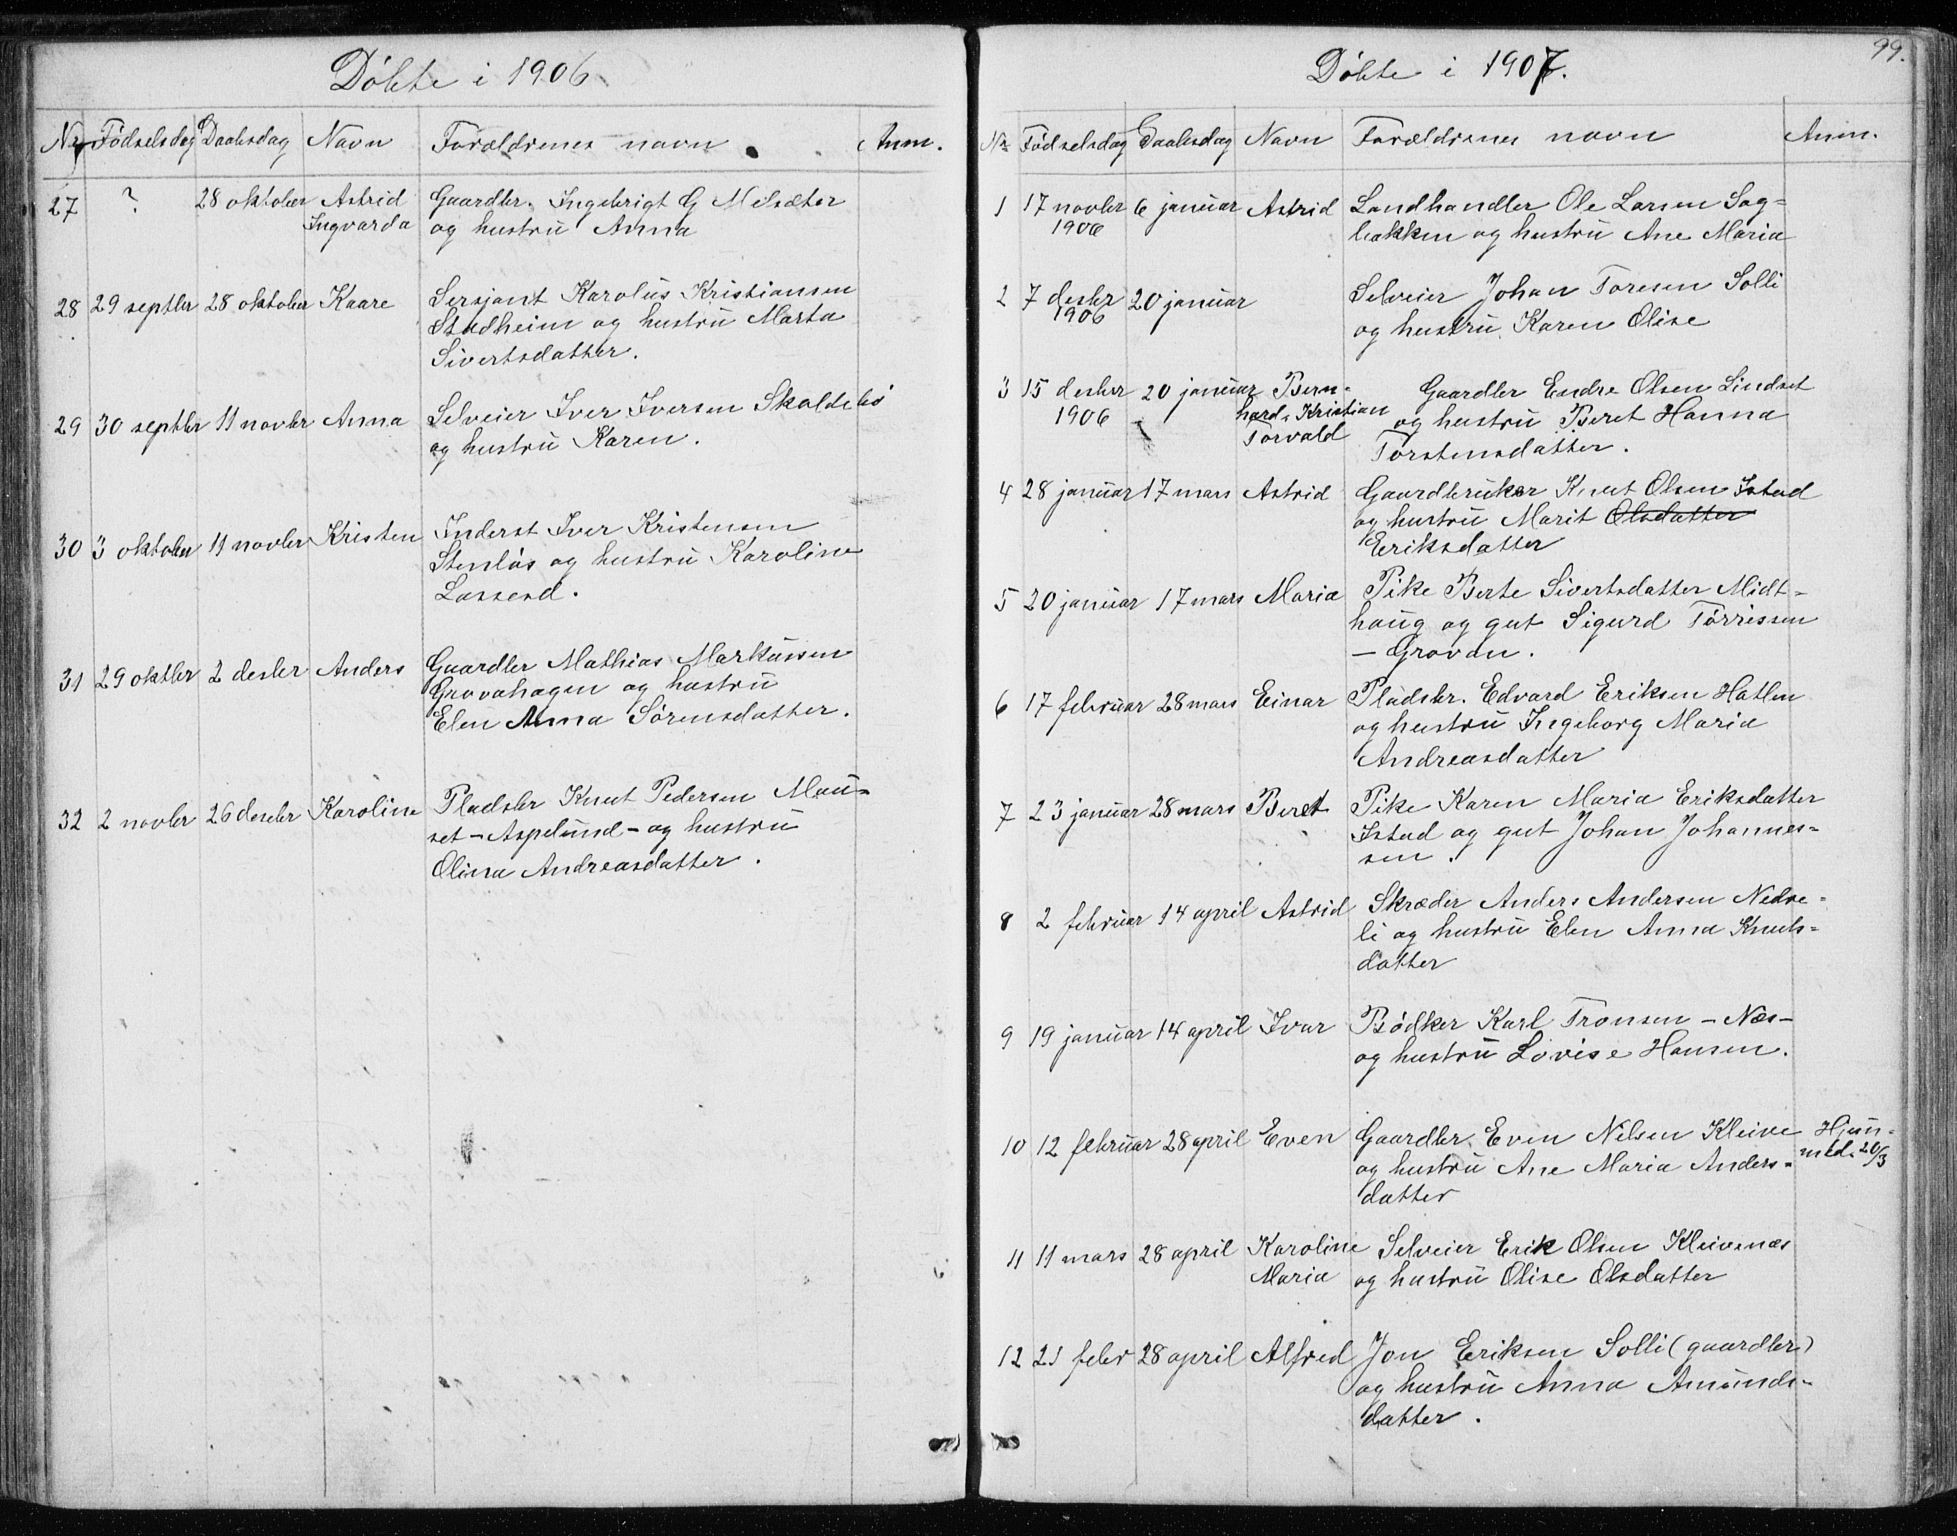 Döbte i 1906
Nr Födselsdag Daabsdag Navn Forældrenes navn Anm.
27 ? 28 oktober Astrid Gaardbr. Ingebrigt G Melsæter
Ingvarda og hustru Anna
28 29 septbr 28 oktober Kaare Sersjant Karolus Kristiansen
Stadheim og hustru Marta
Sivertsdatter.
29 30 septbr 11 novbr Anna Selveier Iver Iversen Skaldebö
og hustru Karen.
30 3 oktober 11 novbr Kristen Inderst Iver Kristensen
Stenlös og hustru Karoline
31 29 oktbr 2 desbr Anders Gaardbr Mathias Markussen
Grovahagen og hustru
Elen Anna Sörensdatter.
32 2 novbr 26 desebr Karoline Pladsbr Knut Pedersen Mau-
set - Aspelund - og hustru
Olina Andreasdatter.
99.
Döbte i 1907.
Nr Födselsdag Daabsdag Navn Forældrenes navn Anm.
1 17 novbr 6 januar Astrid Landhandler Ole Larsen Sag-
1906 bakken og hustru Ane Maria
2 7 desbr 20 januar Selveier Johan Toresen Solli
1906 og hustru Karen Olise
3 15 desbr 20 januar Bern- Gaardbr Endre Olsen Lindset
1906 hard Kristian og hustru Beret Hanna
Torvald Torstensdatter.
4 28 januar 17 mars Astrid Gaardbruker Knut Olsen Istad
og hustru Marit Olsdatter
Eriksdatter
5 20 januar 17 mars Maria Pike Berte Sivertsdatter Midt-
haug og gut Sigurd Törrissen
- Grovan.
6 17 februar 28 mars Einar Pladsbr. Edvard Eriksen Hatlen
og hustru Ingeborg Maria
Andreasdatter
7 23 januar 28 mars Beret Pike Karen Maria Eriksdatter
Istad og gut Johan Johannes-
sen.
8 2 februar 14 april Astrid Skræder Anders Andersen Nedre-
li og hustru Elen Anna Knuts-
datter
9 19 januar 14 april Ivar Bödker Karl Tronsen - Næs -
og hustru Lovise Hansen.
10 12 februar 28 april Even Gaardbr. Even Nilsen Kleive Hjem-
og hustru Ane Maria Anders- med. 20/3
datter
11 11 mars 28 april Karoline Selveier Erik Olsen Kleivenæs
Maria og hustru Olise Olsdatter
12 21 febr 28 april Alfred Jon Eriksen Solli (gaardbr)
og hustru Anna Amunds-
datter.